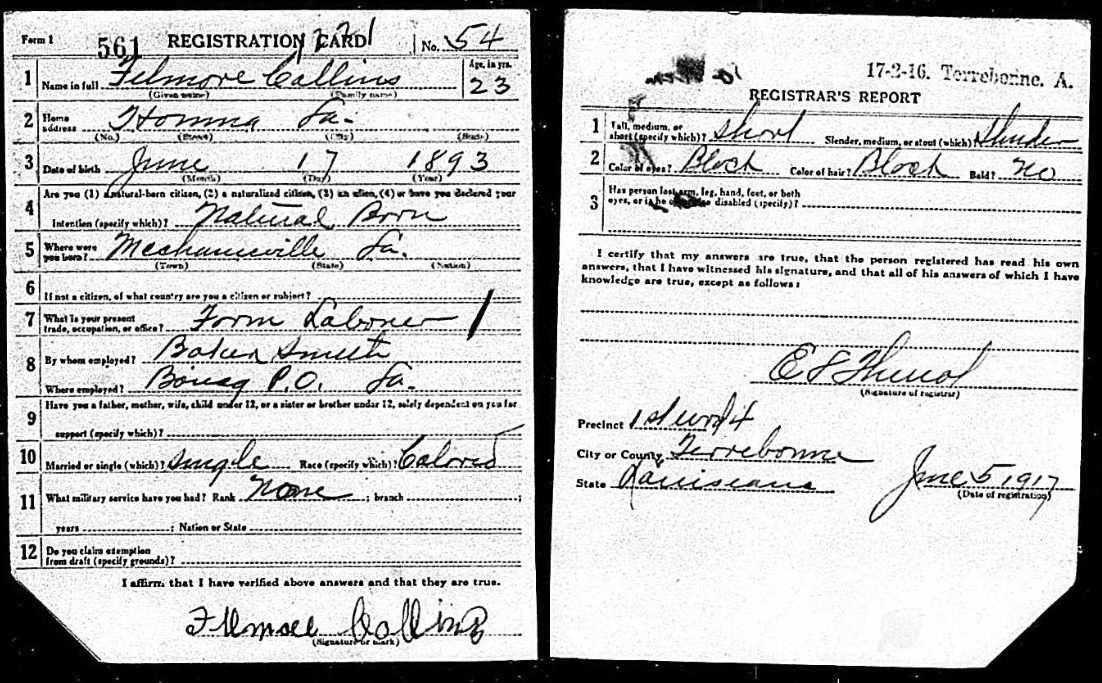 Form 1 561 REGISTRATION CARD No. 54
1 Name in full Filmore Collins Age, in yrs. 23
(Given name) (Family name)
2 Home address Homma La.
(No.) (Street) (City) (State)
3 Date of birth June 17 1893
(Month) (Day) (Year)
4 Are you (1) a natural-born citizen, (2) a naturalized citizen, (3) an alien, (4) or have you declared your
intention (specify which)? Natural Born
5 Where were you born? Mechanicville La.
(Town) (State) (Nation)
6 If not a citizen, of what country are you a citizen or subject?
7 What is your present trade, occupation, or office? Farm Laborer
8 By whom employed? Baker Smith
Where employed? P.O. La.
9 Have you a father, mother, wife, child under 12, or a sister or brother under 12, solely dependent on you for
support (specify which)?
10 Married or single (which)? Single Race (specify which)? Colored
11 What military service have you had? Rank None ; branch ;
years ; Nation or State
12 Do you claim exemption from draft (specify grounds)?
I affirm that I have verified above answers and that they are true.
Filmore Collins
(Signature or mark)
17-2-16. Terrebonne, A.
REGISTRAR'S REPORT
1 Tall, medium, or short (specify which)? Short Slender, medium, or stout (which)? Slender
2 Color of eyes? Black Color of hair? Black Bald? No
3 Has person lost arm, leg, hand, foot, or both
eyes, or is he otherwise disabled (specify)?
I certify that my answers are true, that the person registered has read his own
answers, that I have witnessed his signature, and that all of his answers of which I have
knowledge are true, except as follows:
(Signature of registrar)
Precinct 1st ward 4
City or County Terrebonne
State Louisiana June 5, 1917
(Date of registration)